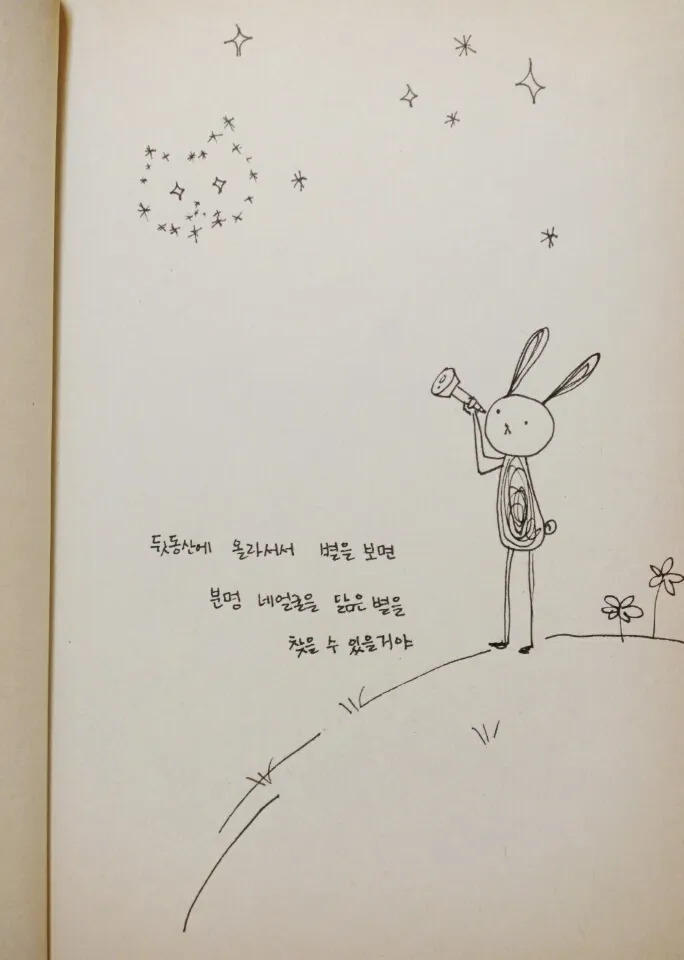 뒷동산에 올라서서 별을 보면
분명 네얼굴을 닮은 별을
찾을 수 있을거야